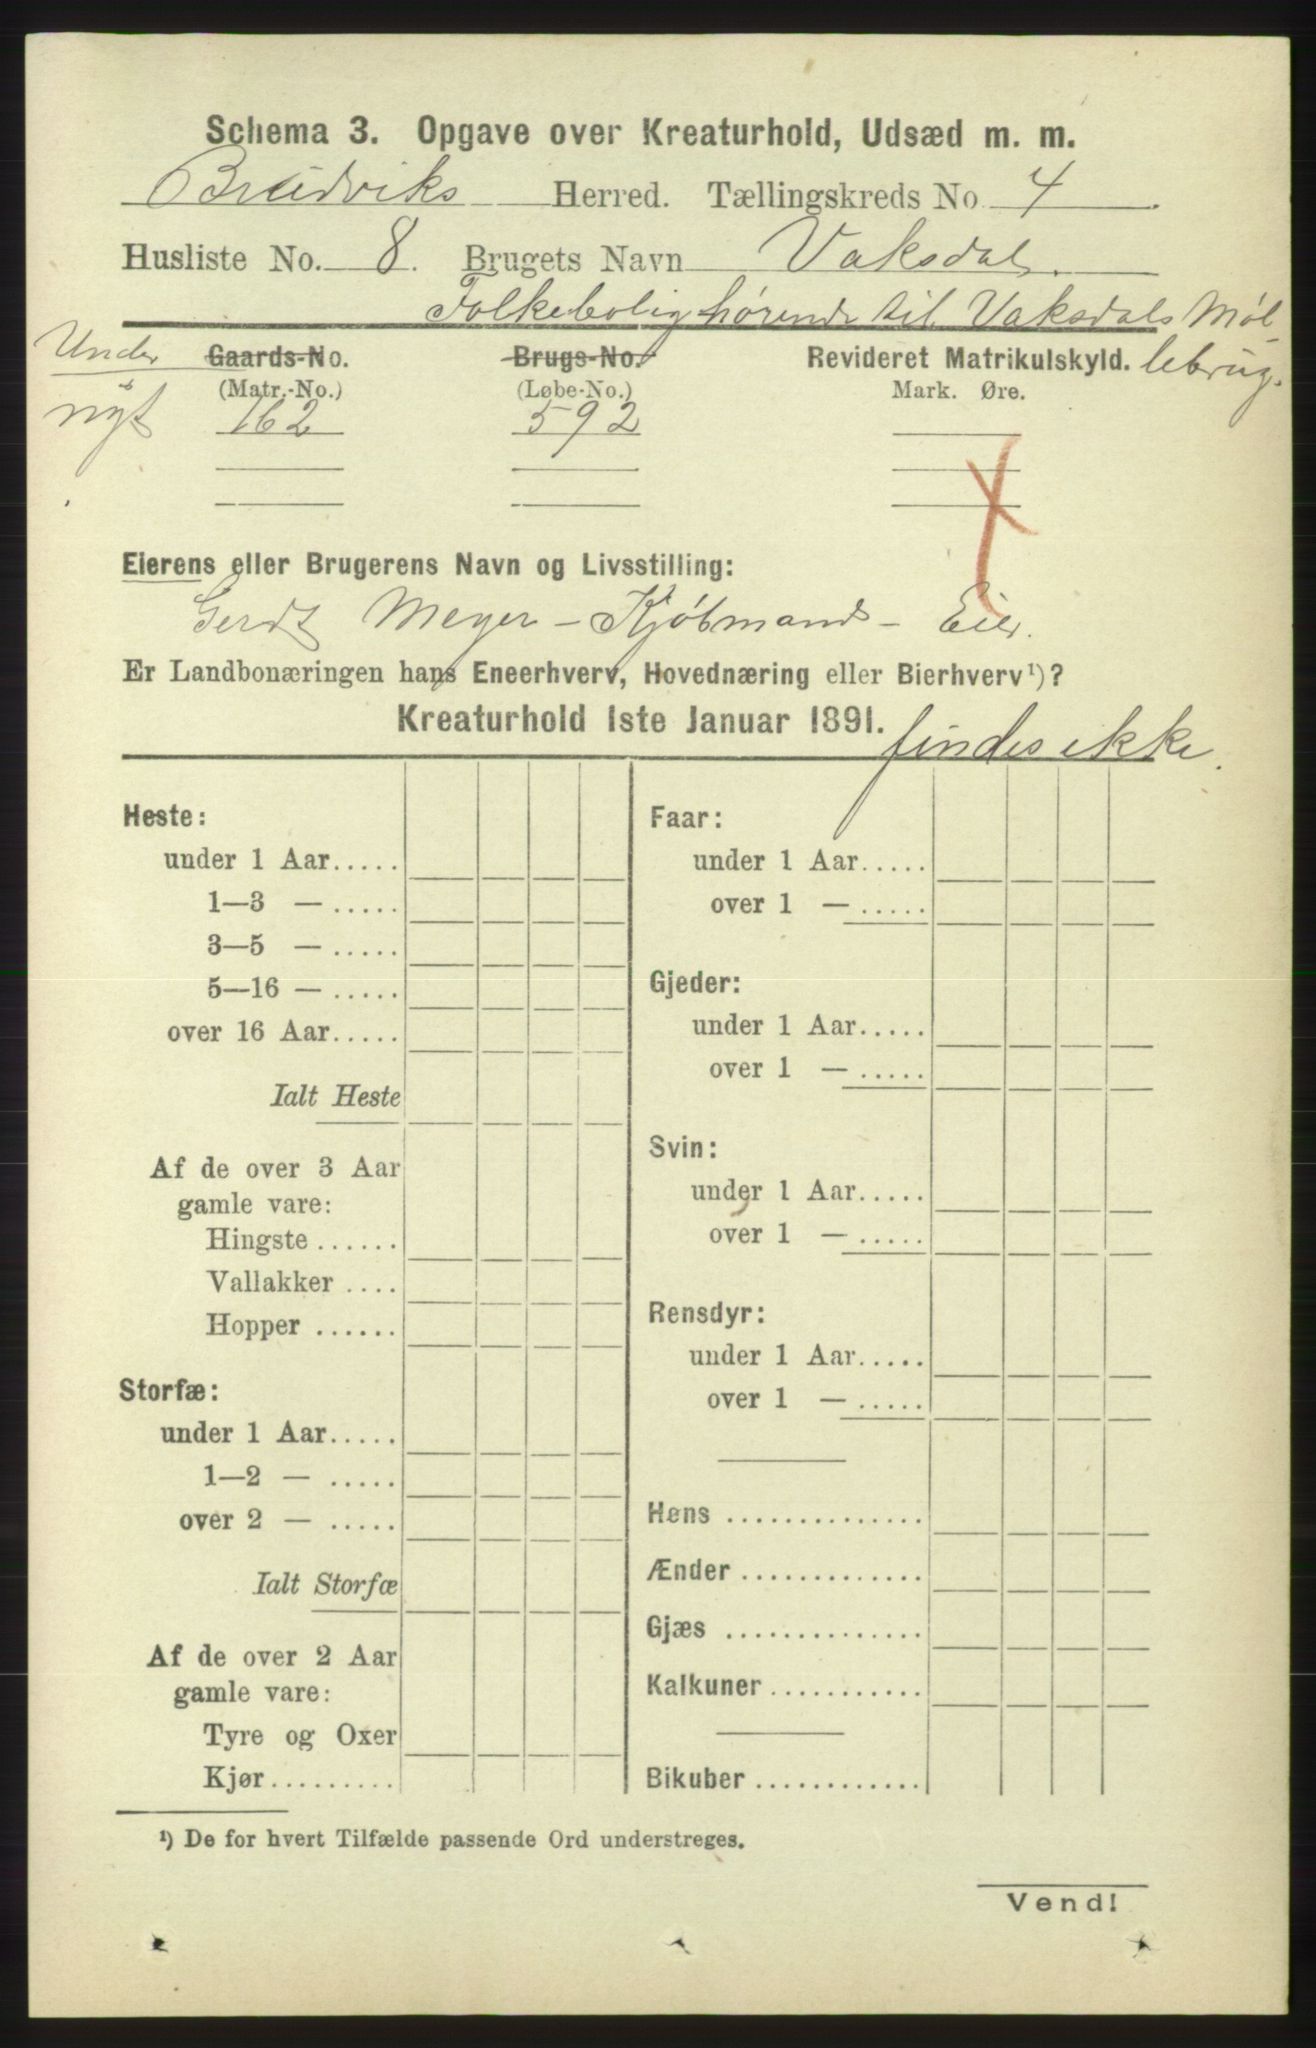 Schema 3. Opgave over Kreaturhold, Udsæd m. m.
Bruvviks Herred. Tællingskreds No. 4
Husliste No. 8. Brugets Navn Vaksdal.
Folkebolig hørende til Vaksdals Møl
lebrug.
Under Gaards-No. Brugs-No. Revideret Matrikulskyld.
(Matr.-No.) (Løbe-No.) Mark. Øre.
nyt 162 592
Eierens eller Brugerens Navn og Livsstilling:
Gerdt Meyer – Kjøbmand – Eier.
Er Landbonæringen hans Eneerhverv, Hovednæring eller Bierhverv¹)?
Kreaturhold 1ste Januar 1891.
findes ikke.
Heste:
under 1 Aar.....
1—3 — .....
3—5 — .....
5—16 — .....
over 16 Aar.....
Ialt Heste
Af de over 3 Aar
gamle vare:
Hingste ......
Vallakker ....
Hopper ......
Storfæ:
under 1 Aar.....
1—2 — .....
over 2 — .....
Ialt Storfæ
Af de over 2 Aar
gamle vare:
Tyre og Oxer
Kjør.........
Faar:
under 1 Aar.....
over 1 — .....
Gjeder:
under 1 Aar.....
over 1 — .....
Svin:
under 1 Aar.....
over 1 — .....
Rensdyr:
under 1 Aar.....
over 1 — .....
Høns ..............
Ænder .............
Gjæs ..............
Kalkuner ...........
Bikuber ............
¹) De for hvert Tilfælde passende Ord understreges.
Vend!